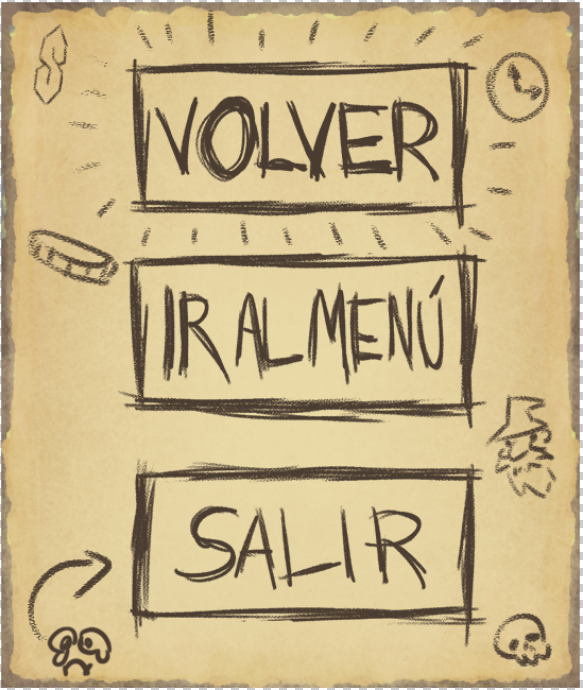 VOLVER
IR AL MENÚ
SALIR